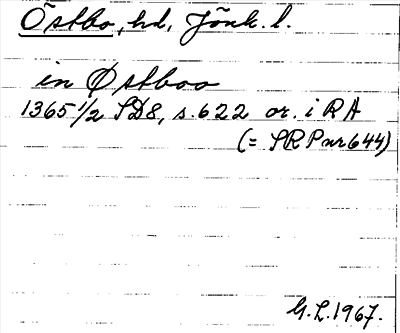 Östbo, hd, Jönk. l.
in Østboo
1365 1/2 SD8, s. 622 or. i RA
(= SRP nr 644)
G. L. 1967.